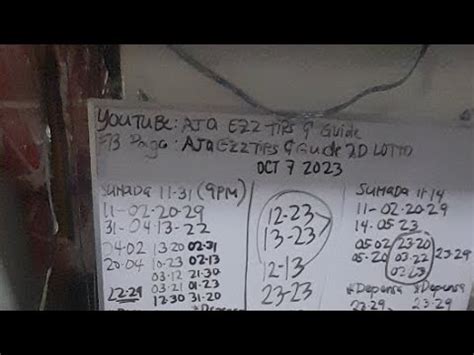 YOUTUBE: AJA EZ2 TIPS & Guide
FB Page: AJA EZ2 TIPS & Guide 2D LOTTO
OCT 7 2023
SUMADA 11-31 (9PM)
11-02-20-29
31-04-13-22
04-02 13-20 02-31
20-04 10-23 02-13
03-12 21-30
22-29 03-21 01-23
12-30 31-20
12-23
13-23
12-13
23-23
SUMADA 11-14
11-02-20-29
14-05-23
05-02 23-20
05-20 03-22 23-29
02-23
*Depensa *Depensa
22-29 23-29